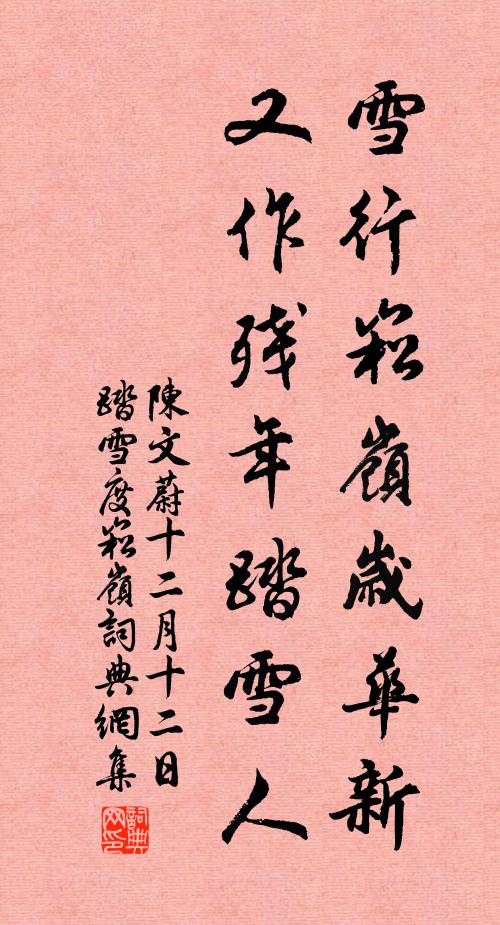 雪行䈡嶺歲華新
又作残年踏雪人
陳文蔚十二月十二日
踏雪度䈡嶺詞典網集
詞典
网印